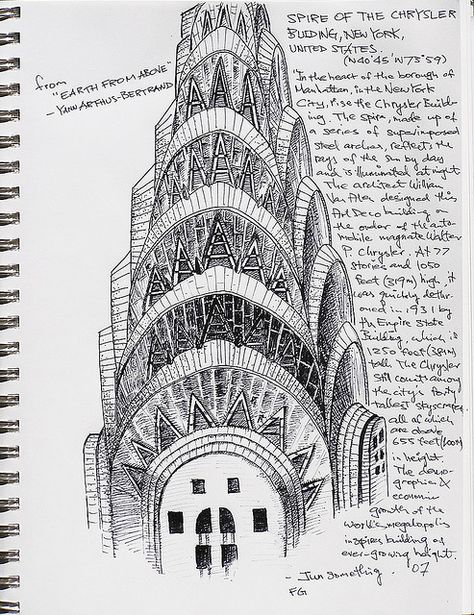 from
"EARTH FROM ABOVE"
- YANN ARTHUS-BERTRAND
SPIRE OF THE CHRYSLER
BUIDING, NEW YORK,
UNITED STATES.
(N40°45' W73°59)
"In the heart of the borough of
Manhattan, in the New York
City, rise the Chrysler Build-
ing. The spire, made up of
a series of superimposed
steel arches, reflects the
rays of the sun by day
and is illuminated at night.
The architect William
Van Allen designed this
Art Deco building on
the order of the auto-
mobile magnate Walter
P. Chrysler. At 77
stories and 1050
feet (319m) high, it
was quickly dethr-
oned in 1931 by
the Empire State
Building, which is
1250 feet (381m)
tall. The Chrysler
still counts among
the city's forty
tallest skyscrapers
all of which
are above
655 feet (200m)
in height.
The demo-
graphic &
economic
growth of the
world's megalopolis
inspires building of
ever-growing height.
- Jun Something. '07
FG